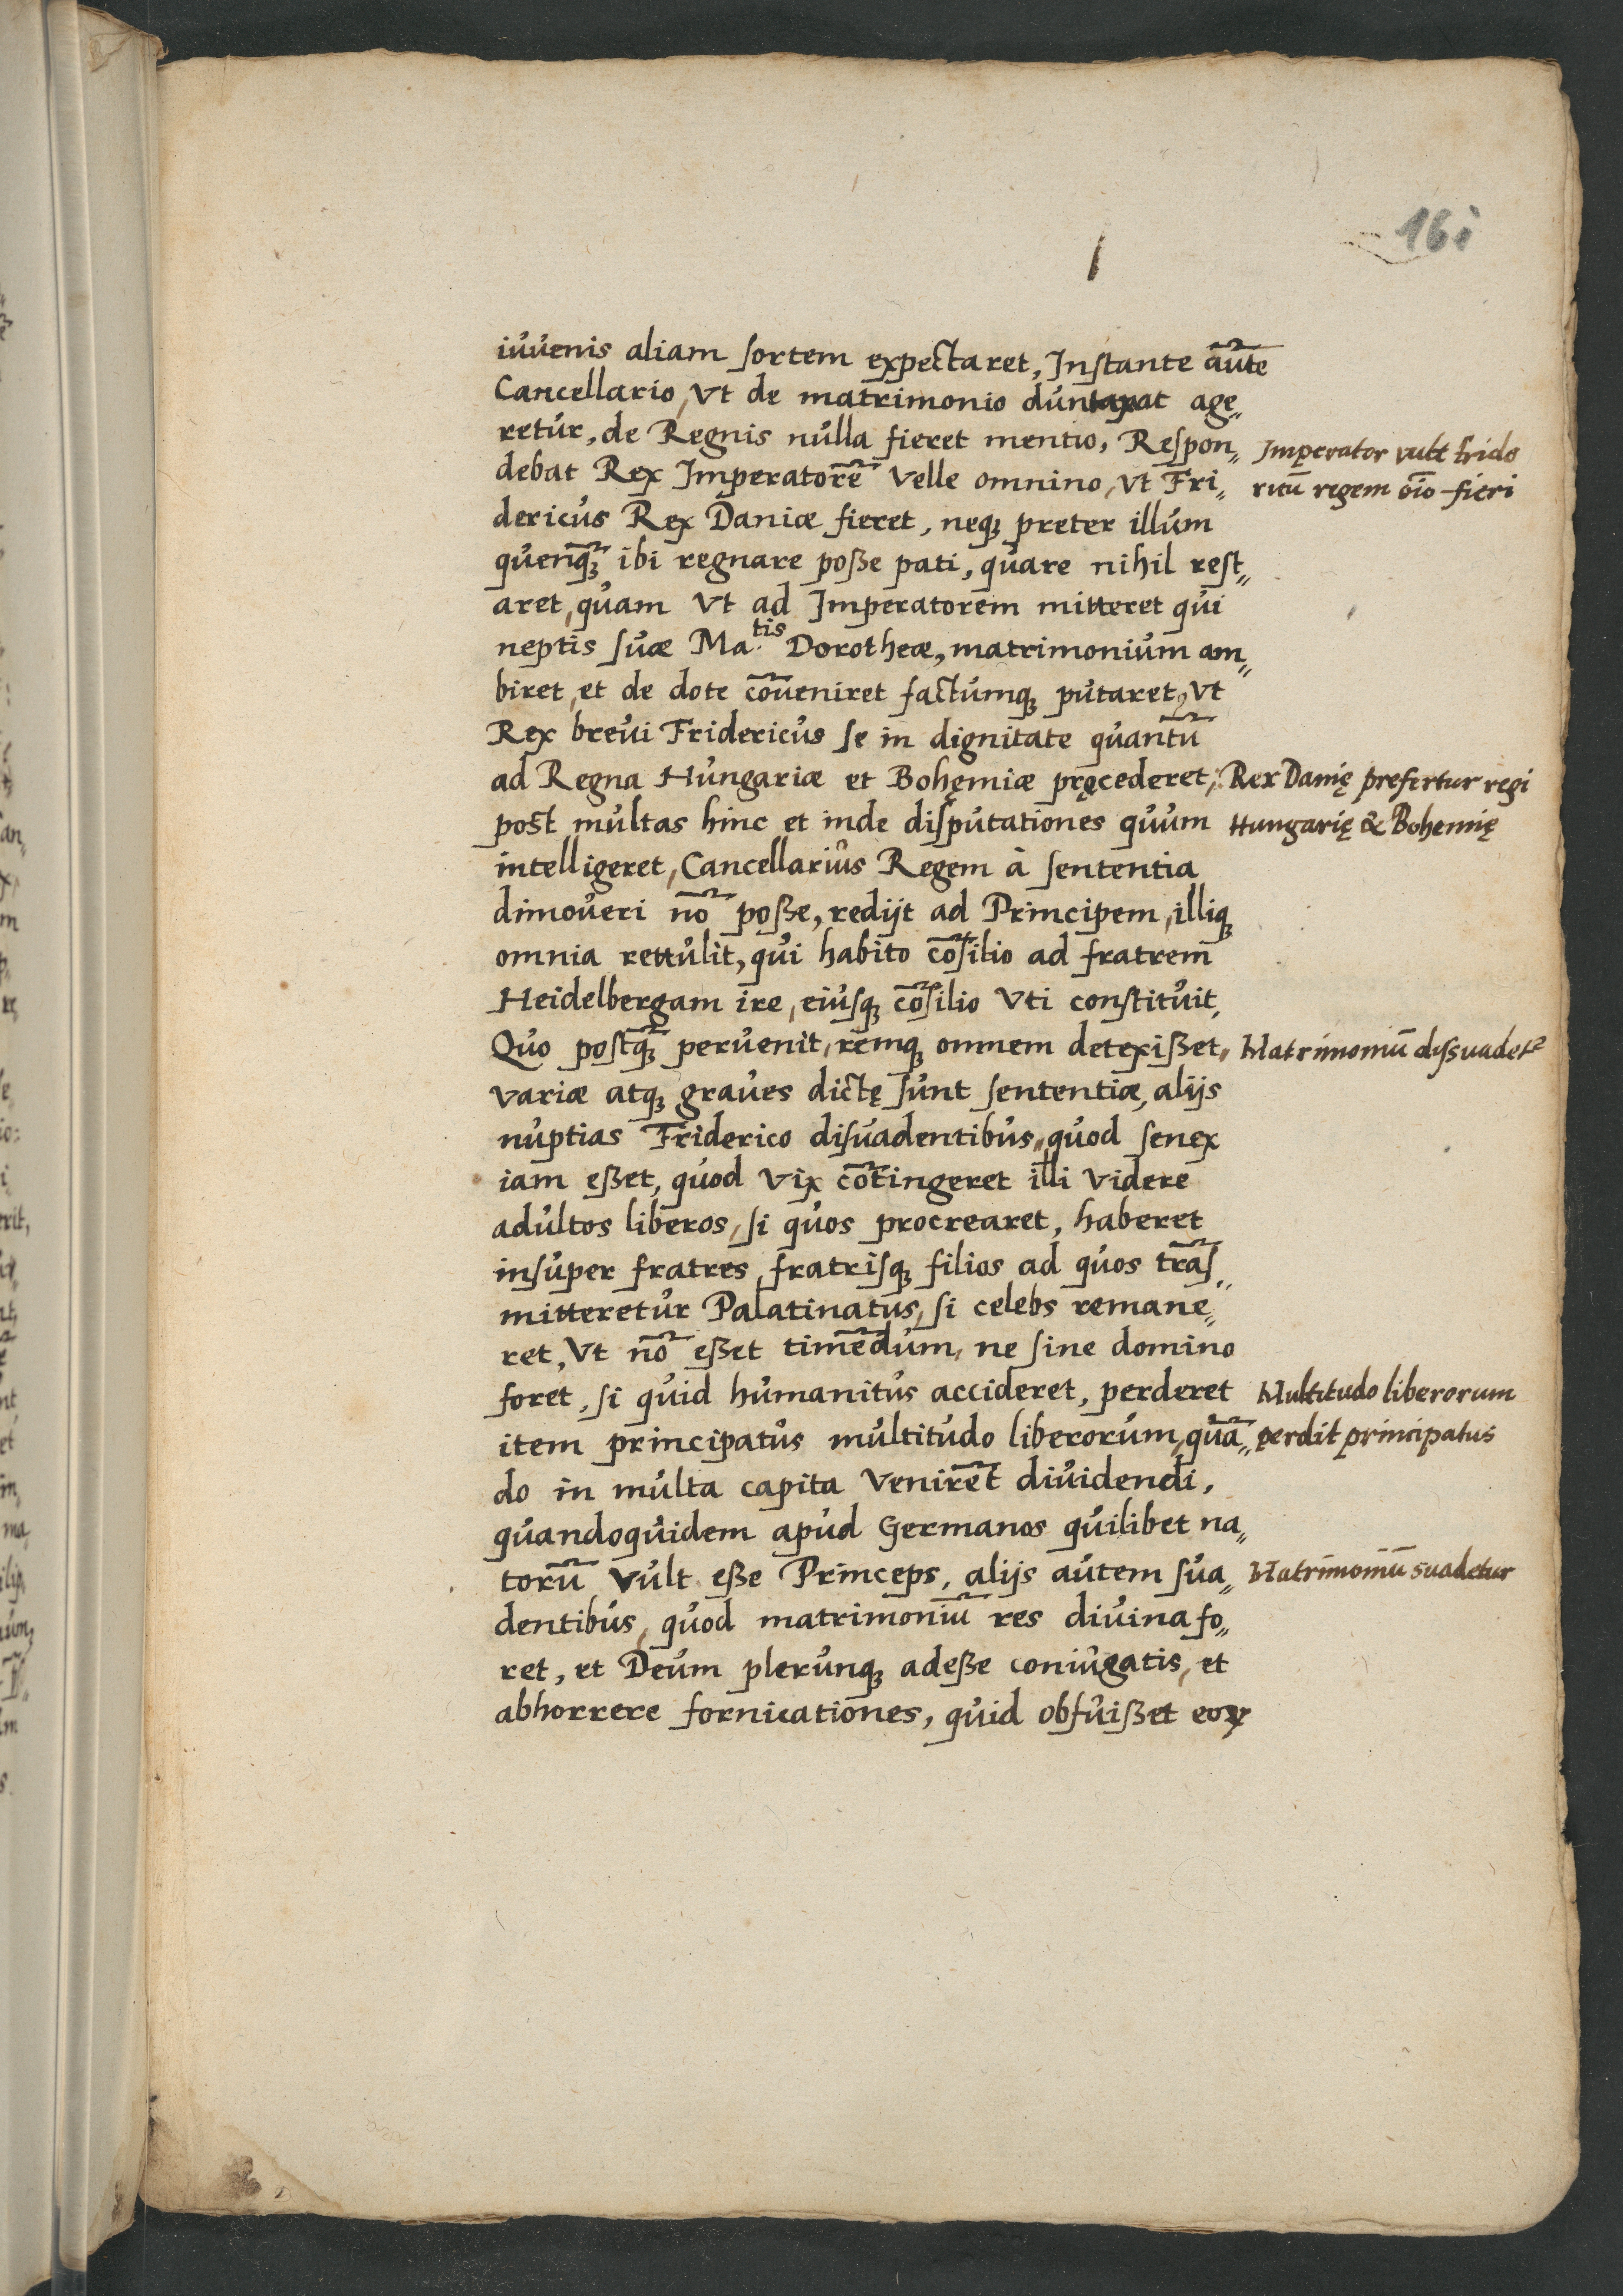 161
iuvenis aliam sortem expectaret, Instante aūte
Cancellario, Vt de matrimonio duntaxat age„
retur, de Regnis nulla fieret mentio, Respon„
debat Rex Imperatorē Velle omnino, Vt Fri„
Imperator vult Fride
ricū regem oīo fieri
dericus Rex Daniæ fieret, neq; preter illum
quenq̄; ibi regnare poße pati, quare nihil rest„
aret, quam Vt ad Imperatorem mitteret qui
neptis suæ Ma.tis Dorotheæ, matrimonium am„
biret, et de dote cōueniret factumq; putaret, Vt
Rex breui Fridericus se in dignitate quantū
ad Regna Hungariæ et Bohęmiæ pręcederet,
Rex Danię prefertur regi
Hungarię & Bohemię
post multas hinc et inde disputationes quum
intelligeret, Cancellarius Regem à sententia
dimoueri nō poße, redijt ad Principem, illiq;
omnia rettulit, qui habito cōsilio ad fratrem
Heidelbergam ire, eiusq; cōsilio Vti constituit,
Quo postq̄; peruenit, remq; omnem detexißet,
Matrimoniū dissuadet²
variæ atq; graues dictę sunt sententiæ, alijs
nuptias Friderico disuadentibus, quod senex
iam eßet, quod Vix cōtingeret illi Videre
adultos liberos, si quos procrearet, haberet
insuper fratres, fratrisq; filios ad quos trās„
mitteretur Palatinatus, si celebs remane„
ret, Vt nō eßet timēdum, ne sine domino
foret, si quid humanitus accideret, perderet
Multitudo liberorum
perdit principatus
item principatus multitudo liberorum, quā„
do in multa capita Venirēt diuidendi,
quandoquidem apud Germanos quilibet na„
torū Vult eße Princeps, alijs autem sua„
Matrimoniū suadetur
dentibus, quod matrimoniū res diuina fo„
ret, et Deum plerunq; adeße coniugatis, et
abhorrere fornicationes, quid obfuißet eoꝝ